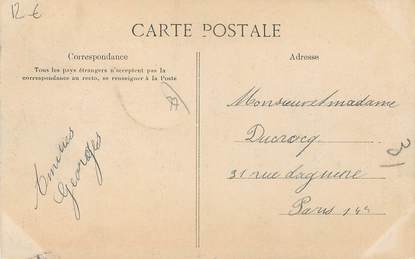 12 - €
CARTE POSTALE
Correspondance
Tous les pays étrangers n'acceptent pas la
correspondance au recto, se renseigner à la Poste
Amitiés
Georges
Adresse
Monsieur et madame
Ducrocq
31 rue daguerre
Paris 14